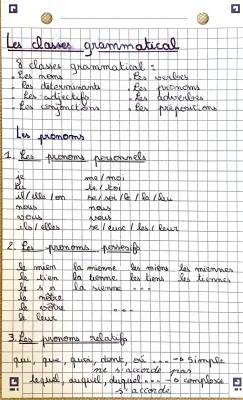 Les classes grammatical
8 classes grammatical :
. Les noms . Les verbes
. Les déterminants . Les pronoms
. Les adjectifs . Les adverbes
. Les conjonctions . Les prépositions
Les pronoms
1. Les pronoms personnels
je me / moi
tu te / toi
il / elle / on se / soi / le / la / lui
nous nous
vous vous
ils / elles se / eux / les / leur
2. Les pronoms possessifs
le mien la mienne les miens les miennes
le tien la tienne les tiens les tiennes
le sien la sienne ...
le nôtre ...
le vôtre ...
le leur
3. Les pronoms relatifs
qui, que, quoi, dont, où ... → simple
ne s'accorde pas
lequel, auquel, duquel ... → complexe
s'accorde